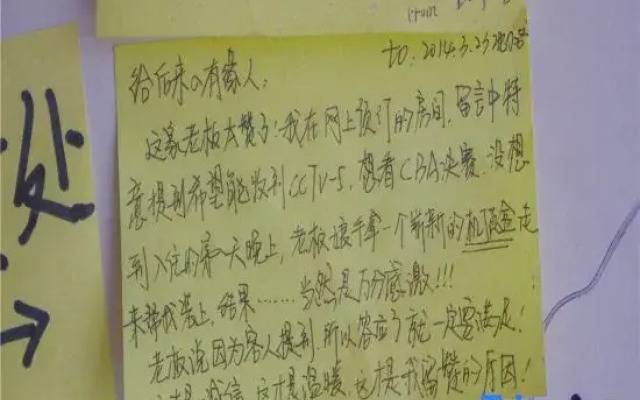 to. 2014.3.23
给后来の有缘人:
这家老板太赞了!我在网上预订的房间,留言中特
意提到希望能收到CCTV-5,想看CBA决赛.没想
到入住的第一天晚上,老板拿一个崭新的机顶盒
来帮我装上,结果……当然是万分感激!!!
老板说因为客人提到,所以答应了就一定要满足!
这才是温暖,这才是我留赞的原因!
处
→